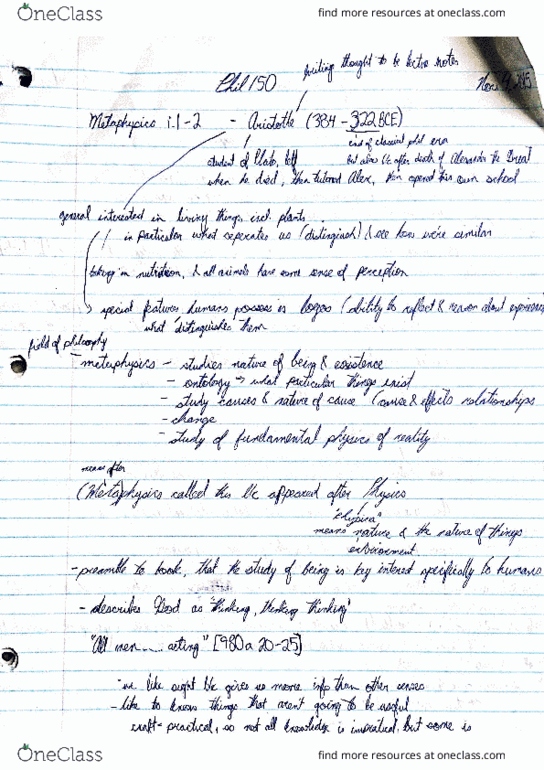 OneClass
find more resources at oneclass.com
writing thought to be lecture notes
Phil 150
Metaphysics i.1-2 - Aristotle (384 - 322 BCE)
end of classical phil era
student of Plato, left but also b/c after death of Alexander the Great
when he died, then tutored Alex, then opened his own school
general interested in living things incl. plants
in particular what seperates us (distinguish) & see how we're similar
taking in nutrition, & all animals have some sense of perception
special features humans possess is logos (ability to reflect & reason about experiences
what distinguishes them
field of philosophy
metaphysics - studies nature of being & existence
- ontology → what particular things exist
- study causes & nature of cause (cause & effects relationships
- change
- study of fundamental physics of reality
means after
(Metaphysics called this b/c appeared after Physics
means nature & the nature of things
environment
- preamble to book, that the study of being is key interest specifically to humans
- describes God as "thinking, thinking thinking"
"All men..... acting" [980a 20-25]
- we like sight b/c gives us more info than other senses
- like to know things that aren't going to be useful
craft - practical, so not all knowledge is impractical but some is
OneClass
find more resources at oneclass.com